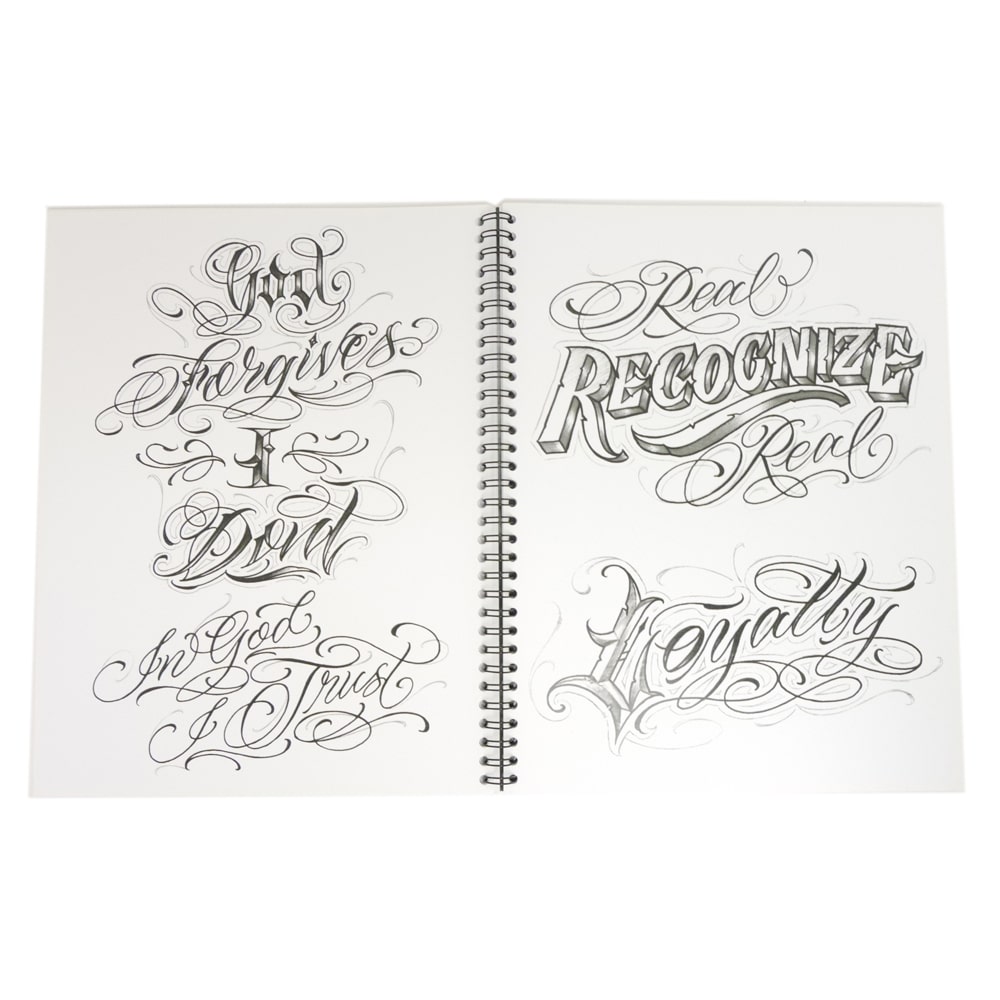 God
Forgives
I
Dont
In God
I Trust
Real
RECOGNIZE
Real
Loyalty